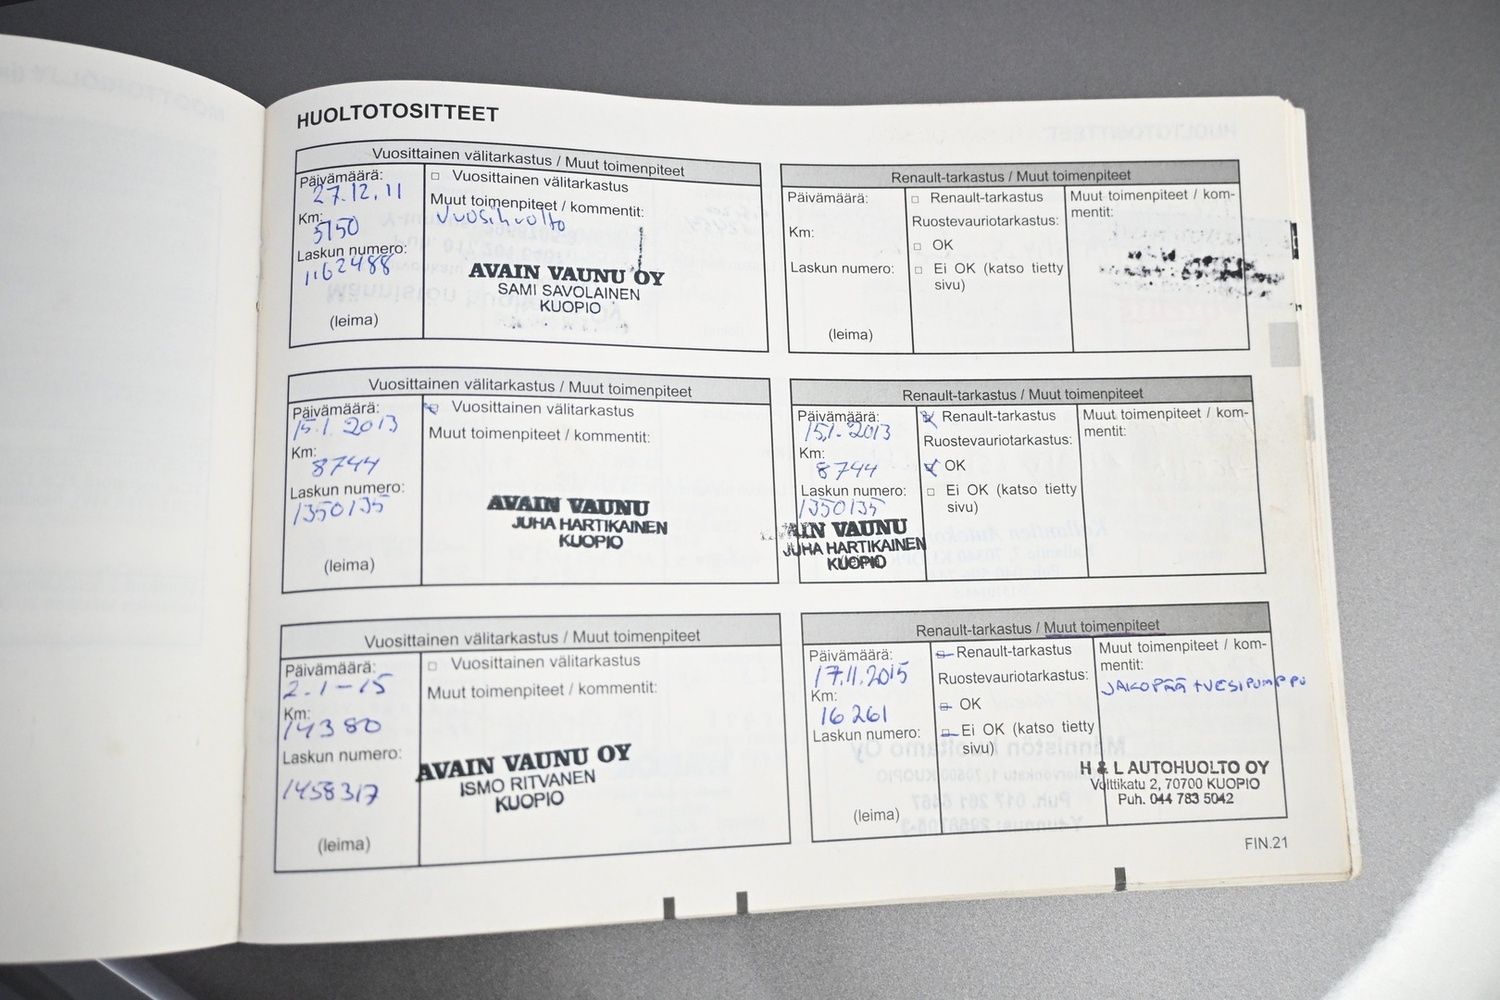 HUOLTOTOSITTEET
Vuosittainen välitarkastus / Muut toimenpiteet
Päivämäärä:
27.12.11
Km:
5150
Laskun numero:
1162488
(leima)
□ Vuosittainen välitarkastus
Muut toimenpiteet / kommentit:
Vuosihuolto
AVAIN VAUNU OY
SAMI SAVOLAINEN
KUOPIO
Renault-tarkastus / Muut toimenpiteet
Päivämäärä:
Km:
Laskun numero:
(leima)
□ Renault-tarkastus
Ruostevauriotarkastus:
□ OK
□ Ei OK (katso tietty
sivu)
Muut toimenpiteet / kom-
mentit:
Vuosittainen välitarkastus / Muut toimenpiteet
Päivämäärä:
15.1. 2013
Km:
8744
Laskun numero:
1350135
(leima)
Vuosittainen välitarkastus
Muut toimenpiteet / kommentit:
AVAIN VAUNU
JUHA HARTIKAINEN
KUOPIO
Renault-tarkastus / Muut toimenpiteet
Päivämäärä:
15.1. 2013
Km:
8744
Laskun numero:
1350135
AIN VAUNU
JUHA HARTIKAINEN
KUOPIO
Renault-tarkastus
Ruostevauriotarkastus:
OK
□ Ei OK (katso tietty
sivu)
Muut toimenpiteet / kom-
mentit:
Vuosittainen välitarkastus / Muut toimenpiteet
Päivämäärä:
2.1-15
Km:
14380
Laskun numero:
1458317
(leima)
□ Vuosittainen välitarkastus
Muut toimenpiteet / kommentit:
AVAIN VAUNU OY
ISMO RITVANEN
KUOPIO
Renault-tarkastus / Muut toimenpiteet
Päivämäärä:
17.11.2015
Km:
16261
Laskun numero:
(leima)
Renault-tarkastus
Ruostevauriotarkastus:
OK
Ei OK (katso tietty
sivu)
Muut toimenpiteet / kom-
mentit:
JAKOPÄÄ + VESIPUMPPU
H & L AUTOHUOLTO OY
Volttikatu 2, 70700 KUOPIO
Puh. 044 783 5042
FIN.21